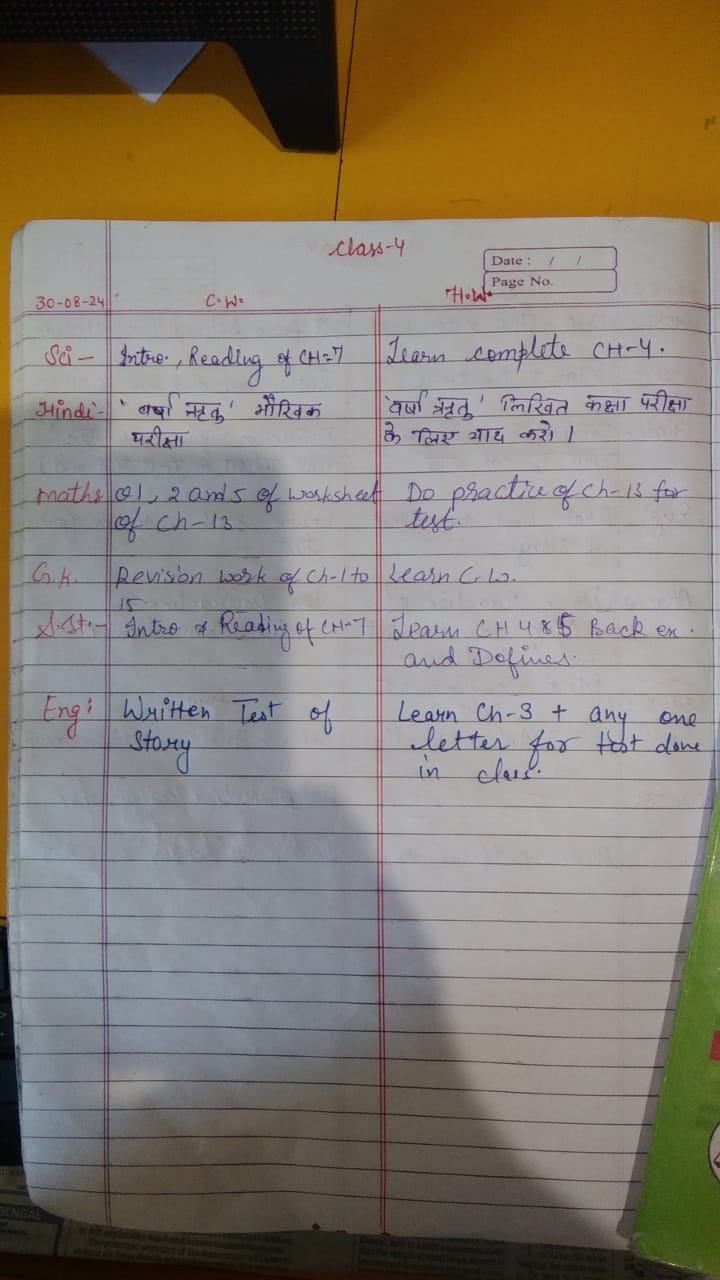 Class-4
Date : / /
Page No.
30-08-24 C.W. H.W.
Sci - Intro., Reading of CH-7 Learn complete CH-4.
Hindi- 'वर्षा ऋतु' मौखिक 'वर्षा ऋतु' लिखित कक्षा परीक्षा
परीक्षा के लिए याद करो।
Maths Q1, 2 and 5 of worksheet Do practice of Ch-13 for
of Ch-13 test.
G.K. Revision work of Ch-1 to Learn C.W.
15.
S.St.- Intro & Reading of CH-7 Learn CH 4 & 5 Back ex.
and Defines.
Eng: Written Test of Learn Ch-3 + any one
Story letter for test done
in class.
BENGAL